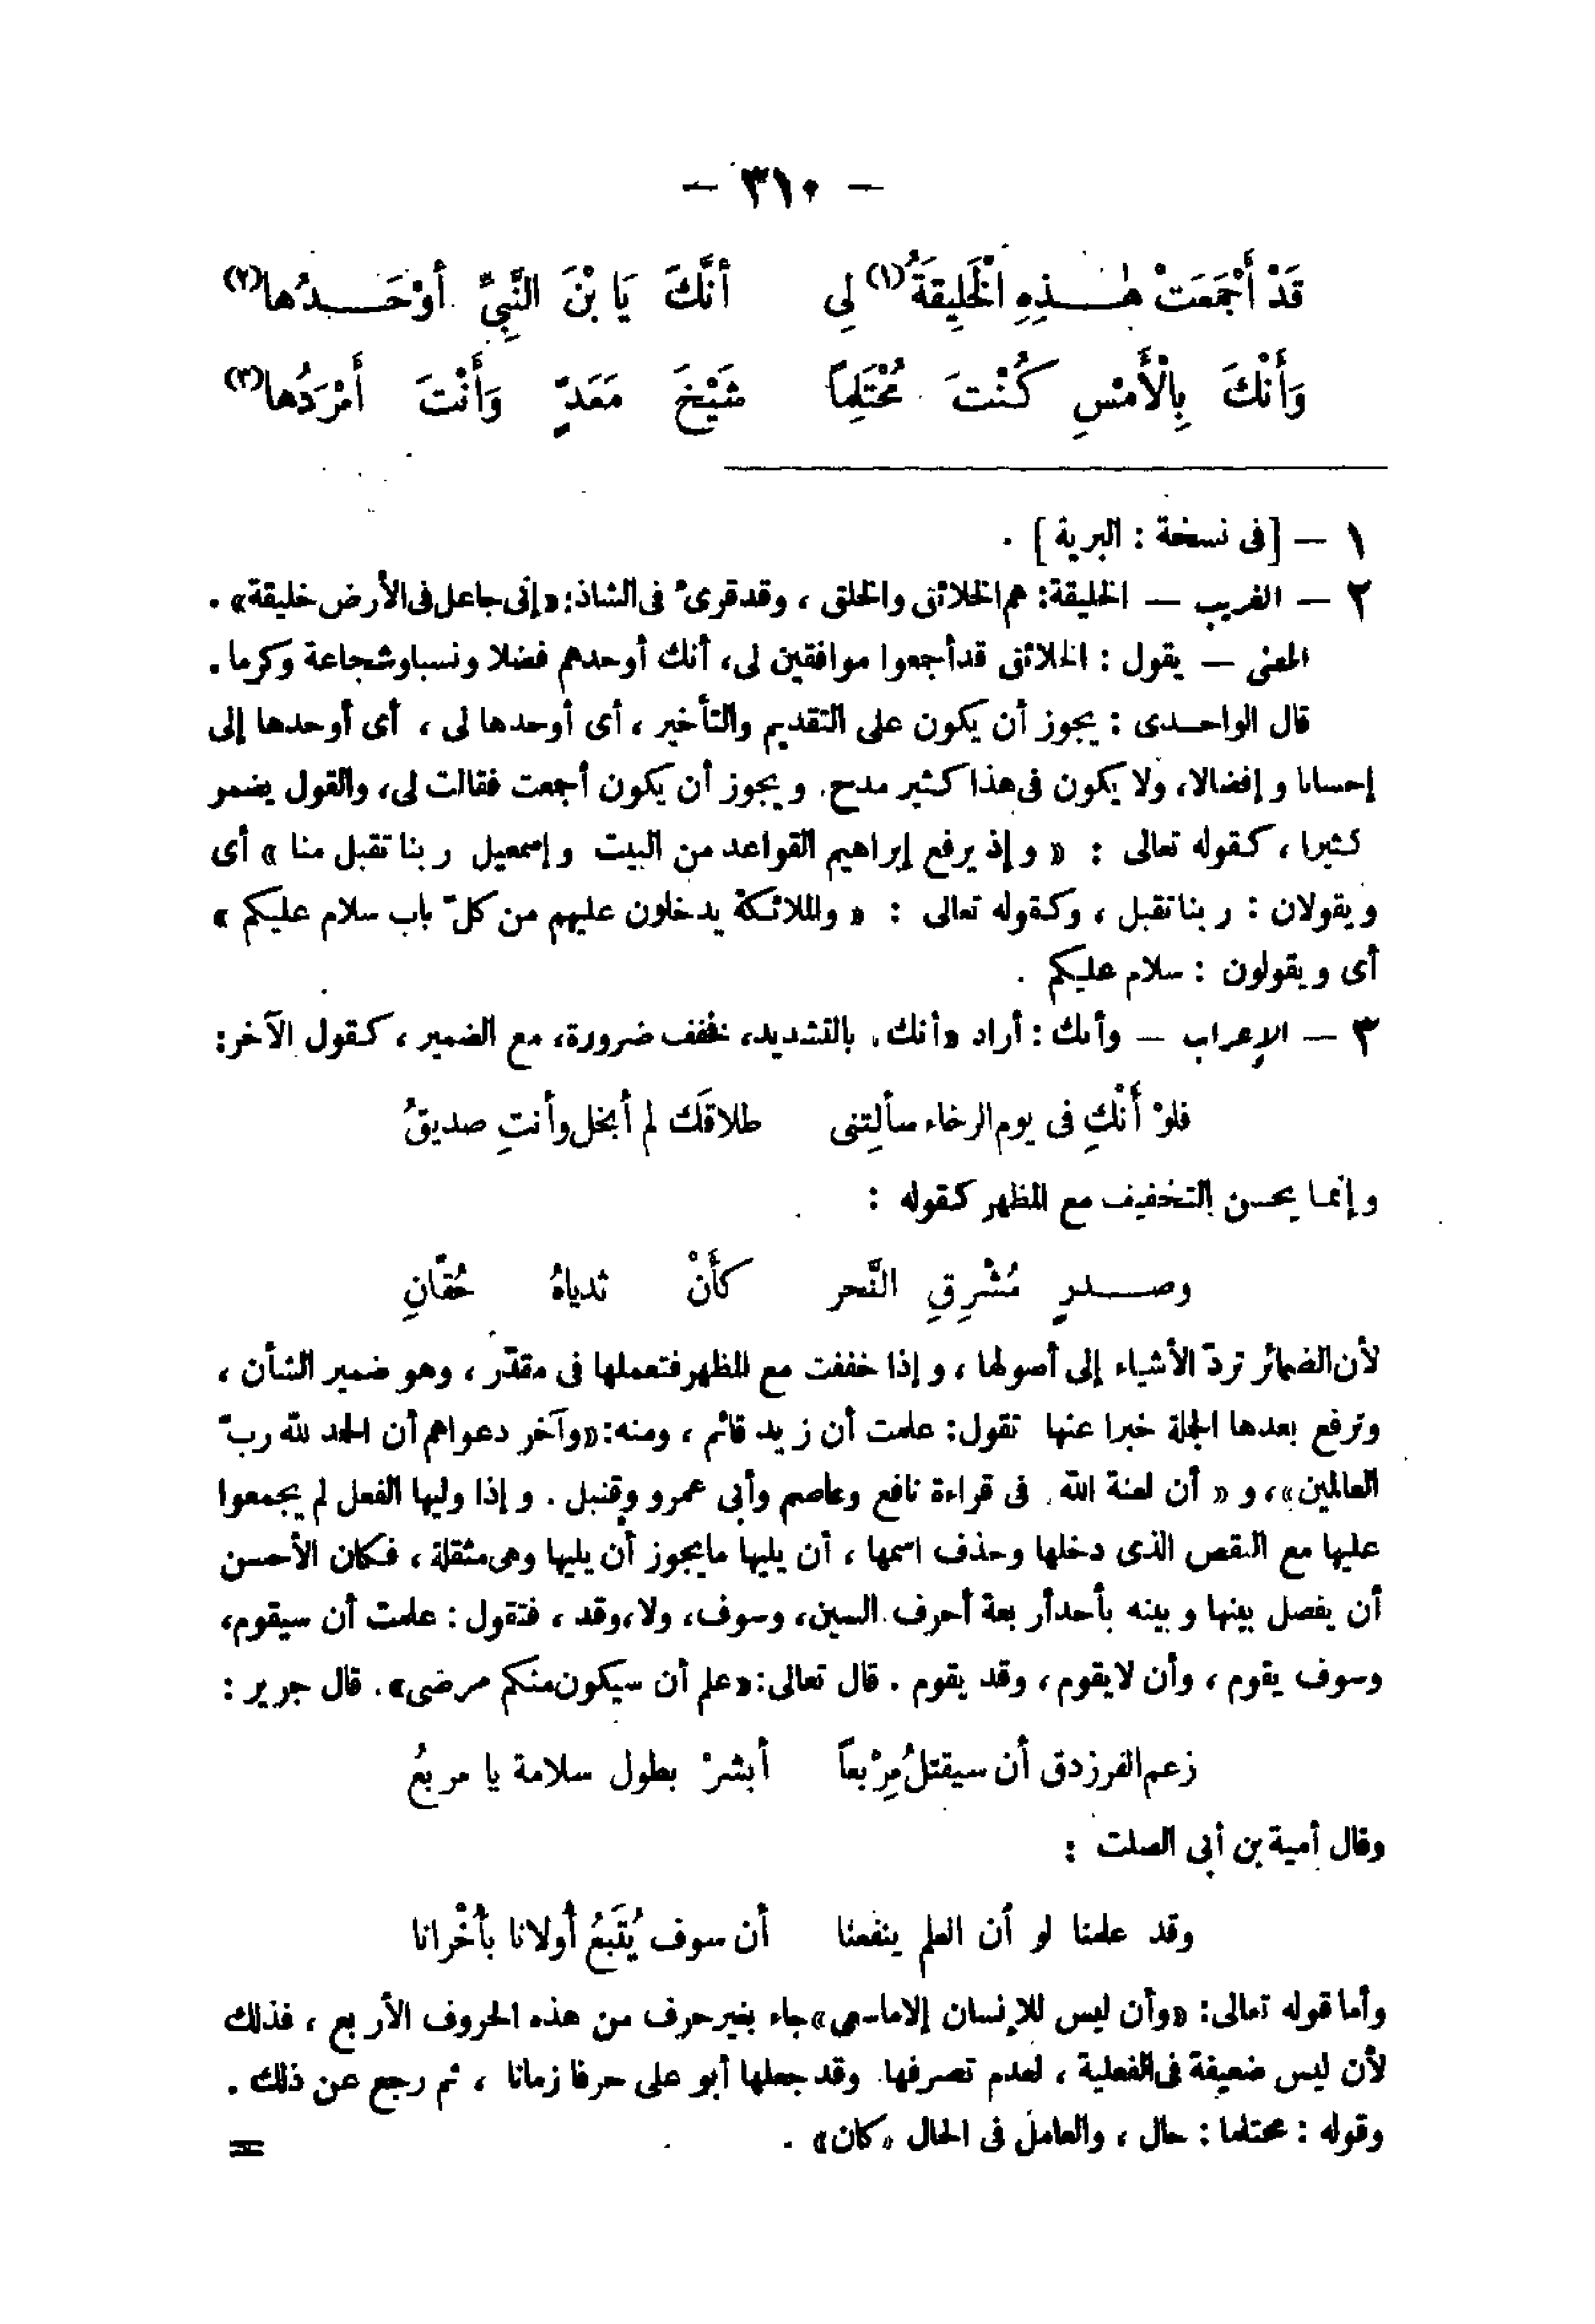 — ٣١٠ —
قَدْ أَجْمَعَتْ هٰـذِهِ الْخَلِيقَةُ(١) لِى أَنَّكَ يَا بْنَ النَّبِىِّ أَوْحَـدُها(٢)
وَأَنْكَ بِالْأَمْسِ كُنْتَ مُحْتَلِماً شَيْخَ مَعَدٍّ وَأَنْتَ أَمْرَدُها(٣)
١ — [فى نسخة : البرية] .
٢ — الغريب — الخليقة: هم الخلائق والخلق ، وقد قرىء فى الشاذ: «إنى جاعل فى الأرض خليقة» .
المعنى — يقول : الخلائق قد أجمعوا موافقين لى، أنك أوحدهم فضلا ونسبا وشجاعة وكرما .
قال الواحـدى : يجوز أن يكون على التقديم والتأخير ، أى أوحدها لى ، أى أوحدها إلى
إحسانا وإفضالا، ولا يكون فى هذا كثير مدح. ويجوز أن يكون أجمعت فقالت لى، والقول يضمر
كثيرا ، كقوله تعالى : « وإذ يرفع إبراهيم القواعد من البيت وإسمعيل ربنا تقبل منا » أى
ويقولان : ربنا تقبل ، وكقوله تعالى : « والملائكة يدخلون عليهم من كلّ باب سلام عليكم »
أى ويقولون : سلام عليكم .
٣ — الإعراب — وأنك : أراد «أنك» بالتشديد، نخفف ضرورة، مع الضمير ، كقول الآخر:
فلوْ أَنْكِ فى يوم الرخاء سألتِنى طلاقَك لم أبخل وأنتِ صديقُ
وإنما يحسن التخفيف مع المظهر كقوله :
وصـدرٍ مُشْرِقِ النَّحر كأَنْ ثدياهُ حُقّانِ
لأن الضمائر تردّ الأشياء إلى أصولها ، وإذا خففت مع المظهر فتعملها فى مقدّر ، وهو ضمير الشأن ،
وترفع بعدها الجملة خبرا عنها تقول: علمت أن زيد قائم ، ومنه: «وآخر دعواهم أن الحمد لله ربّ
العالمين»، و « أن لعنة الله» فى قراءة نافع وعاصم وأبى عمرو وقنبل . وإذا وليها الفعل لم يجمعوا
عليها مع النقص الذى دخلها وحذف اسمها ، أن يليها ما يجوز أن يليها وهى مثقلة ، فكان الأحسن
أن يفصل بينها وبينه بأحد أربعة أحرف السين، وسوف، ولا، وقد ، فتقول : علمت أن سيقوم،
وسوف يقوم ، وأن لا يقوم ، وقد يقوم . قال تعالى: «علم أن سيكون منكم مرضى». قال جرير :
زعم الفرزدق أن سيقتلُ مِرْبعاً أبشرْ بطول سلامة يا مربعُ
وقال أمية بن أبى الصلت :
وقد علمنا لو أن العلم ينفعنا أن سوف يُتْبَعُ أولانا بأُخْرانا
وأما قوله تعالى: «وأن ليس للإنسان إلا ما سعى» جاء بغير حرف من هذه الحروف الأربع ، فذلك
لأن ليس ضعيفة فى الفعلية ، لعدم تصرفها. وقد جعلها أبو على حرفا زمانا ، ثم رجع عن ذلك .
وقوله : محتلما : حال ، والعامل فى الحال «كان» .
=